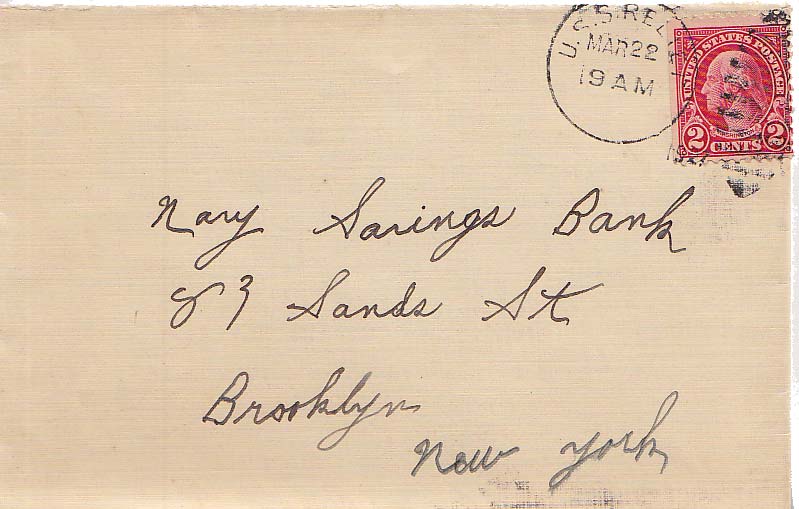 U.S.S.
MAR 22
9 AM
UNITED STATES POSTAGE
WASHINGTON
2 CENTS 2
Navy Savings Bank
83 Sands St
Brooklyn
New York